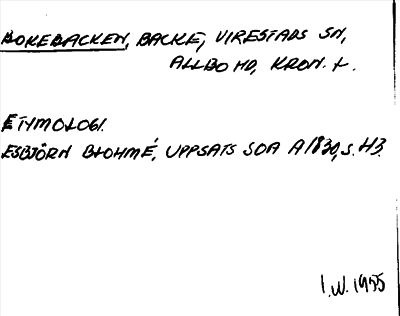 BOKEBACKEN, BACKE, VIRESTADS SN,
ALLBO HD, KRON. L.
ETYMOLOGI.
ESBJÖRN BLOHMÉ, UPPSATS SOA A1830, S. 43.
I.W. 1955